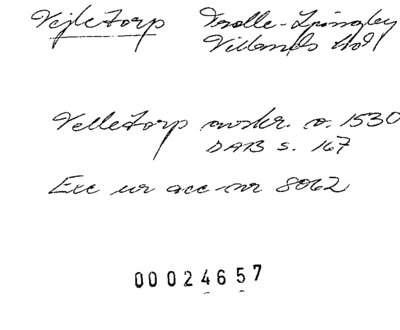 Vejletorp Trolle-Ljungby
Villands hd
Velletorp avskr. o. 1530
DAB s. 167
Exc ur acc nr 8062
00024657